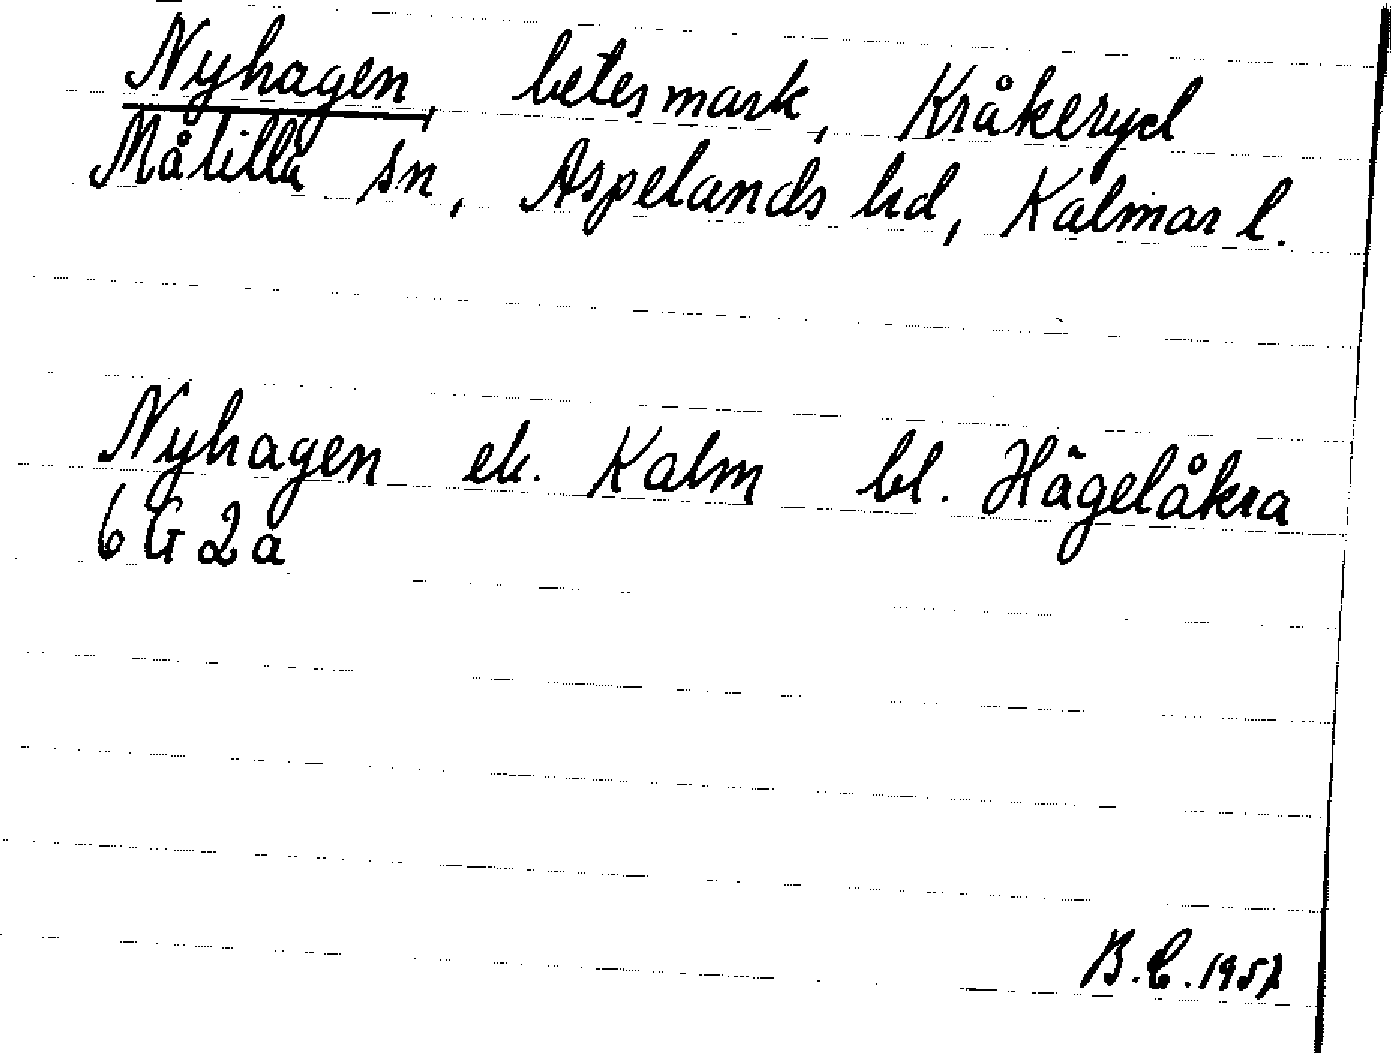 Nyhagen, betesmark, Kråkeryd
Målilla sn, Aspelands hd, Kalmar l.
Nyhagen ek. Kalm bl. Hägelåkra
6 G 2a
B.C. 1957